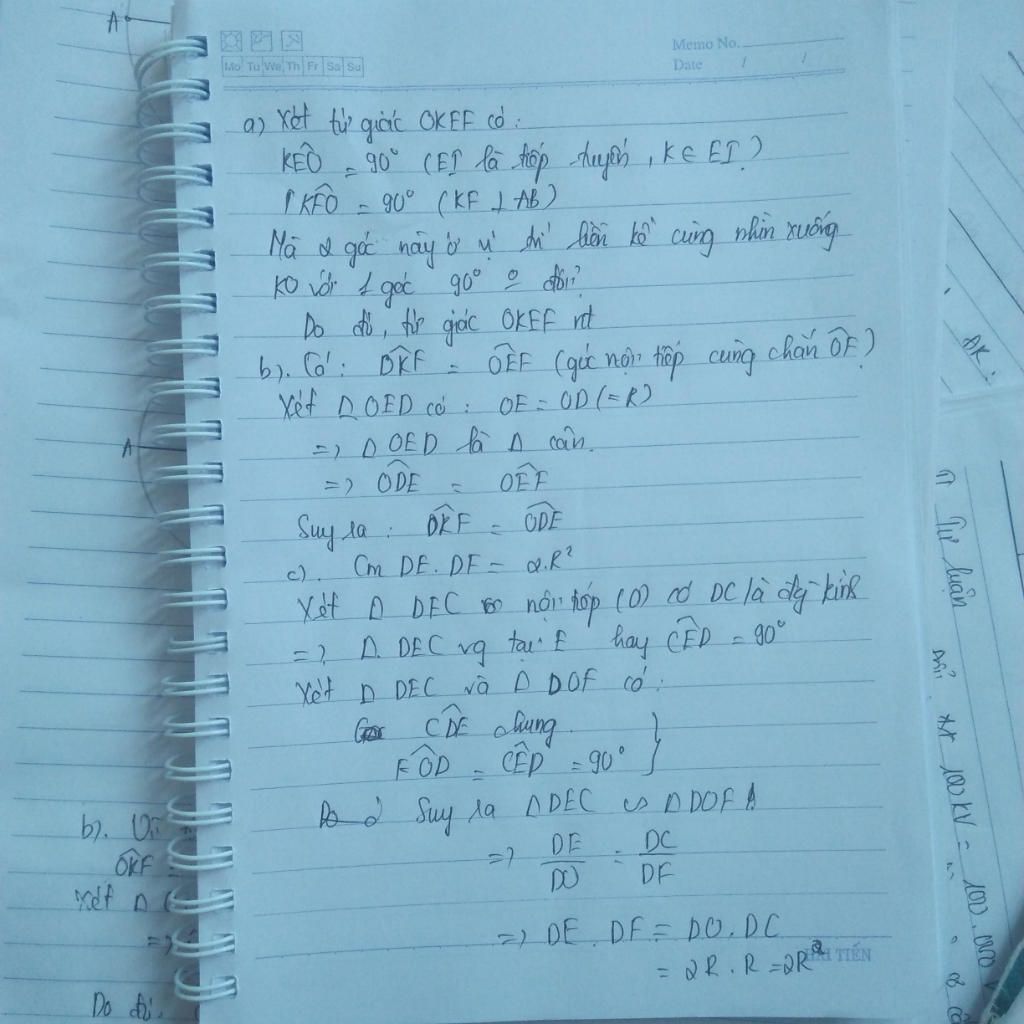 A
Memo No.
Mo Tu We Th Fr Sa Su
Date / /
a) Xét tứ giác OKEF có:
KÊO = 90° (EI là tiếp tuyến, K ∈ EI)
KFO = 90° (KF ⊥ AB)
Mà 2 góc này ở vị trí liền kề cùng nhìn xuống
KO với 1 góc 90° đổi
Do đó, tứ giác OKEF nt
b). Có: OKF = OEF (góc nội tiếp cùng chắn OF)
Xét Δ OED có: OE = OD (=R)
=> Δ OED là Δ cân.
=> ODE = OEF
Suy ra: OKF = ODE
c). Cm DE.DF = 2.R²
Xét Δ DEC nội tiếp (O) có DC là đg kính
=> Δ DEC vg tại E hay CED = 90°
Xét Δ DEC và Δ DOF có:
CDE chung
FOD = CED = 90°
Suy ra ΔDEC ∽ ΔDOF
=> DE/DO = DC/DF
=> DE.DF = DO.DC
= 2R.R = 2R²
HẢI TIẾN
A
b).
OKF =
Xét Δ
=>
Do đó
AK
Tự luận
100KV = 100.000 V